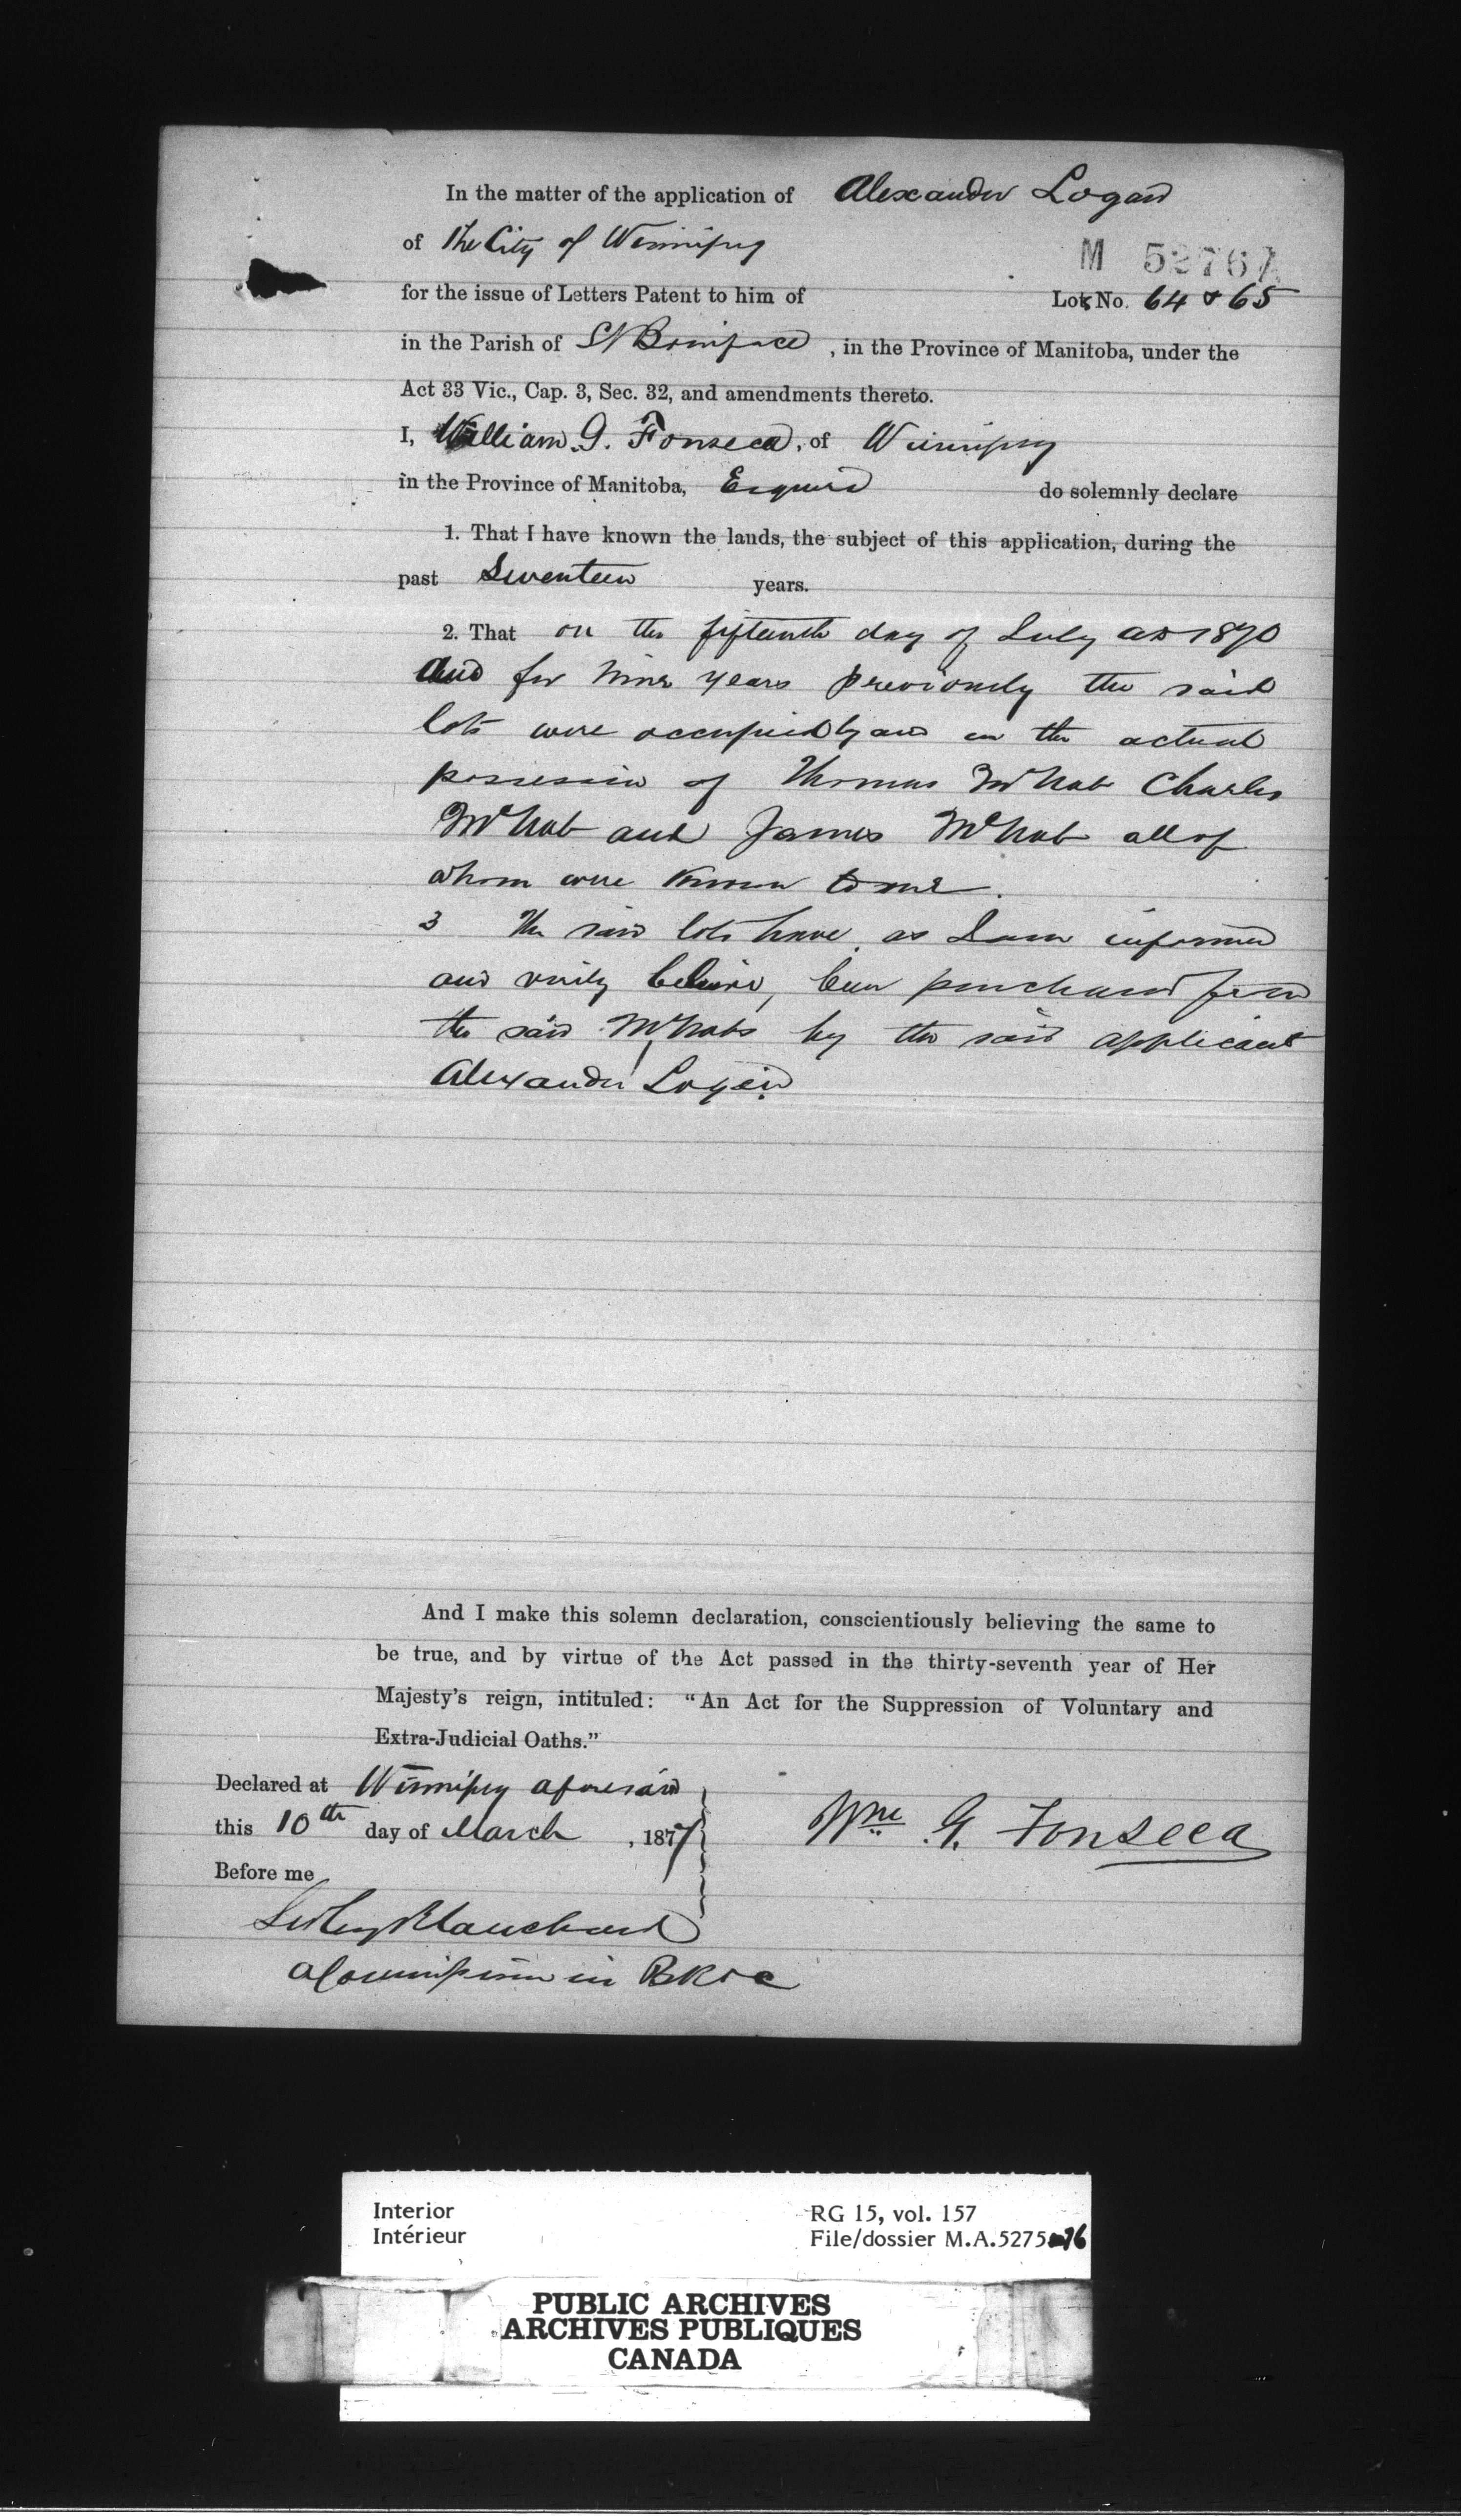 In the matter of the application of Alexander Logan
of the City of Winnipeg
M 5276
for the issue of Letters Patent to him of Lots No. 64 & 65
in the Parish of St Boniface, in the Province of Manitoba, under the
Act 33 Vic., Cap. 3, Sec. 32, and amendments thereto.
I, William G. Fonseca, of Winnipeg
in the Province of Manitoba, Esquire do solemnly declare
1. That I have known the lands, the subject of this application, during the
past Seventeen years.
2. That on the fifteenth day of July AD 1870
and for nine years previously the said
lots were occupied by and in the actual
possession of Thomas McNab Charles
McNab and James McNab all of
whom were known to me.
3 The said lots have, as I am informed
and verily believe, been purchased from
the said McNabs by the said applicant
Alexander Logan.
And I make this solemn declaration, conscientiously believing the same to
be true, and by virtue of the Act passed in the thirty-seventh year of Her
Majesty's reign, intituled: "An Act for the Suppression of Voluntary and
Extra-Judicial Oaths."
Declared at Winnipeg aforesaid
this 10th day of March, 1877
Wm G. Fonseca
Before me
Sedley Blanchard
a Commissioner in B R &c
Interior
Intérieur
RG 15, vol. 157
File/dossier M.A.5275-76
PUBLIC ARCHIVES
ARCHIVES PUBLIQUES
CANADA